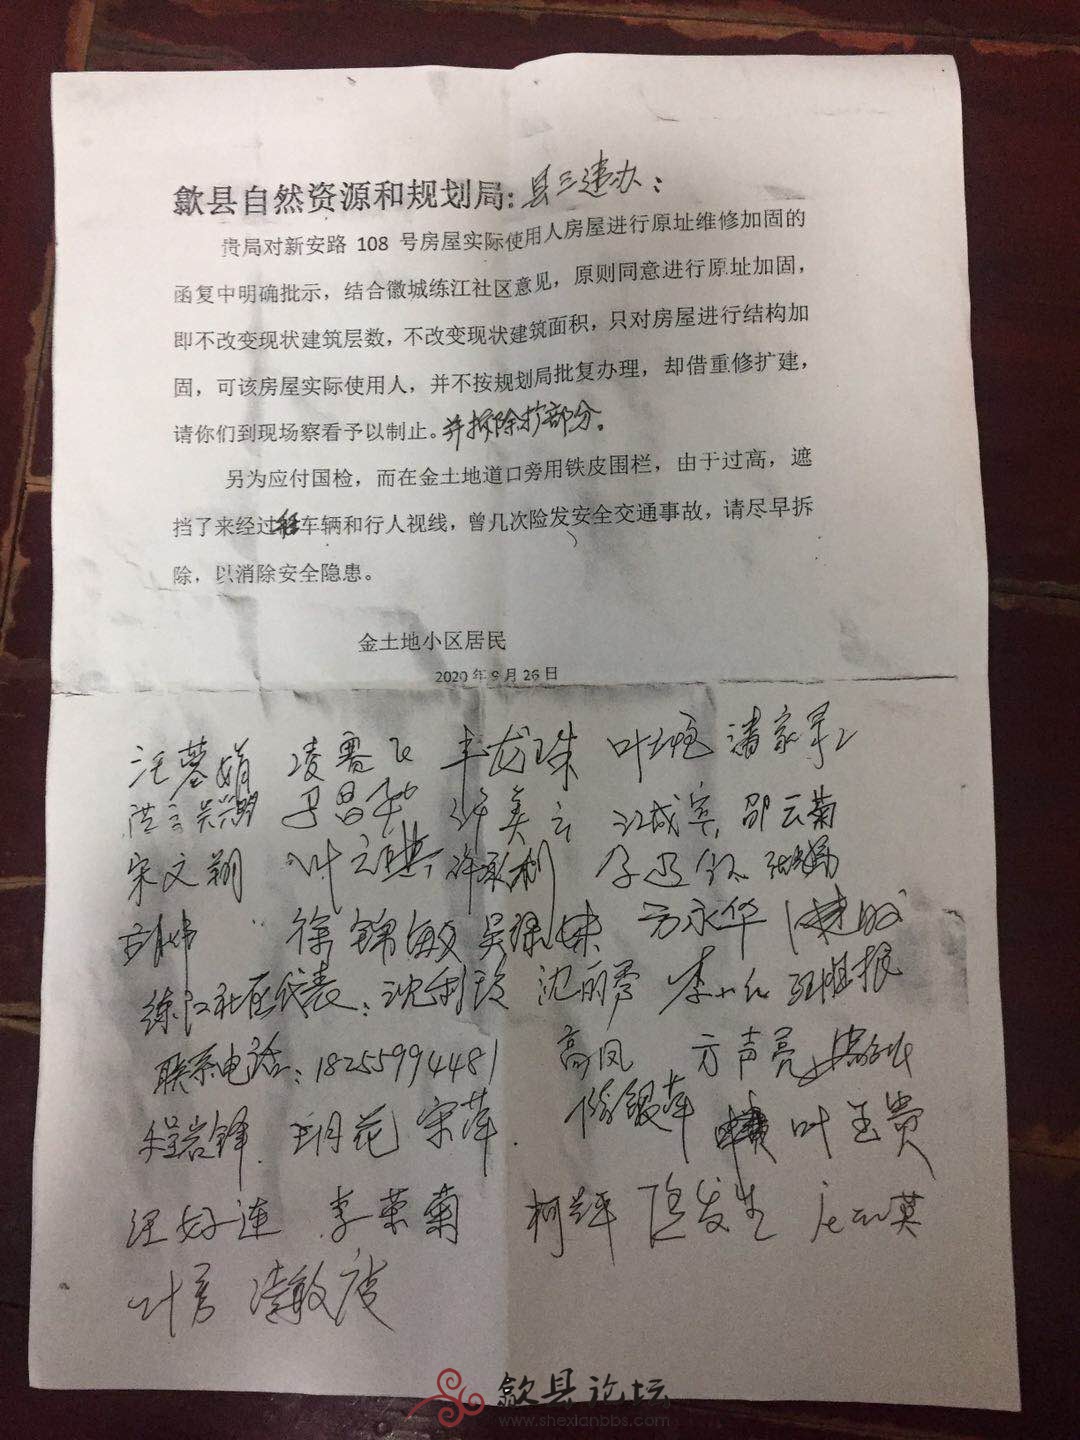 歙县自然资源和规划局:县三违办:
贵局对新安路 108 号房屋实际使用人房屋进行原址维修加固的
函复中明确批示，结合徽城练江社区意见，原则同意进行原址加固，
即不改变现状建筑层数，不改变现状建筑面积，只对房屋进行结构加
固，可该房屋实际使用人，并不按规划局批复办理，却借重修扩建，
请你们到现场察看予以制止。并拆除扩部分。
另为应付国检，而在金土地道口旁用铁皮围栏，由于过高，遮
挡了来经过往车辆和行人视线，曾几次险发安全交通事故，请尽早拆
除，以消除安全隐患。
金土地小区居民
2020 年 9 月 26 日
汪慕娟 凌霄飞 丰龙珠
江成宾 邵云菊
宋文翔 许承利
徐锦敏 方永华
练江社区代表：沈利玲 沈丽琴 李小红
联系电话：18255994481 高凤 方声亮
程岩锋 胡花 宋萍 陈银萍 叶玉贵
汪好连 李荣菊 柯萍 陈发生
叶芳 凌敏
歙县论坛
www.shexianbbs.com